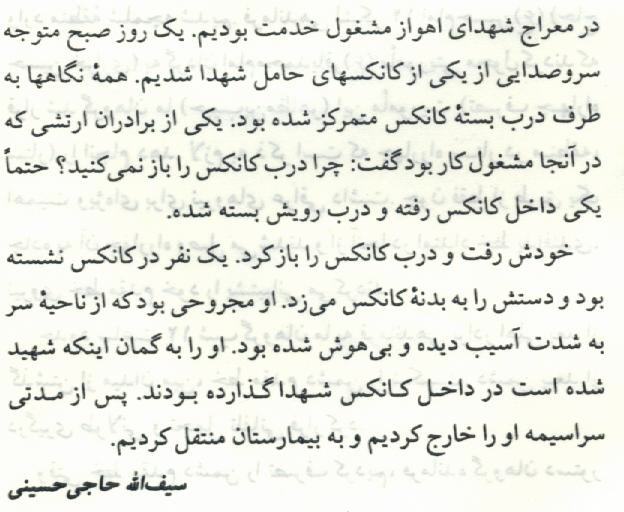 در معراج شهدای اهواز مشغول خدمت بودیم. یک روز صبح متوجه
سروصدایی از یکی از کانکسهای حامل شهدا شدیم. همهٔ نگاهها به
طرف درب بستهٔ کانکس متمرکز شده بود. یکی از برادران ارتشی که
در آنجا مشغول کار بود گفت: چرا درب کانکس را باز نمی‌کنید؟ حتماً
یکی داخل کانکس رفته و درب رویش بسته شده.
خودش رفت و درب کانکس را باز کرد. یک نفر در کانکس نشسته
بود و دستش را به بدنهٔ کانکس می‌زد. او مجروحی بود که از ناحیهٔ سر
به شدت آسیب دیده و بی‌هوش شده بود. او را به گمان اینکه شهید
شده است در داخل کانکس شهدا گذارده بودند. پس از مدتی
سراسیمه او را خارج کردیم و به بیمارستان منتقل کردیم.
سیف‌الله حاجی‌حسینی